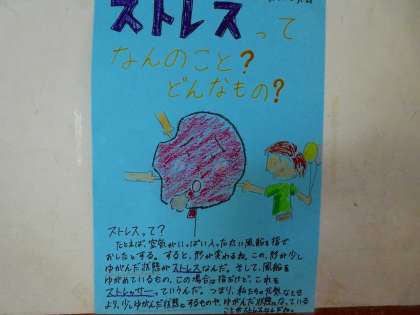 ストレスって
なんのこと?
どんなもの?
ストレスって?
たとえば、空気がいっぱい入った丸い風船を指で
おしたとする。すると、形が変わるね。この、形が少し
ゆがんだ状態がストレスなんだ。そして、風船を
ゆがめているもの、この場合は指だけど、これを
ストレッサーっていうんだ。つまり、私たちは元気なとき
より、少しゆがんだ状態にするものや、ゆがんだ状態になっている
ことがストレスなんだね。